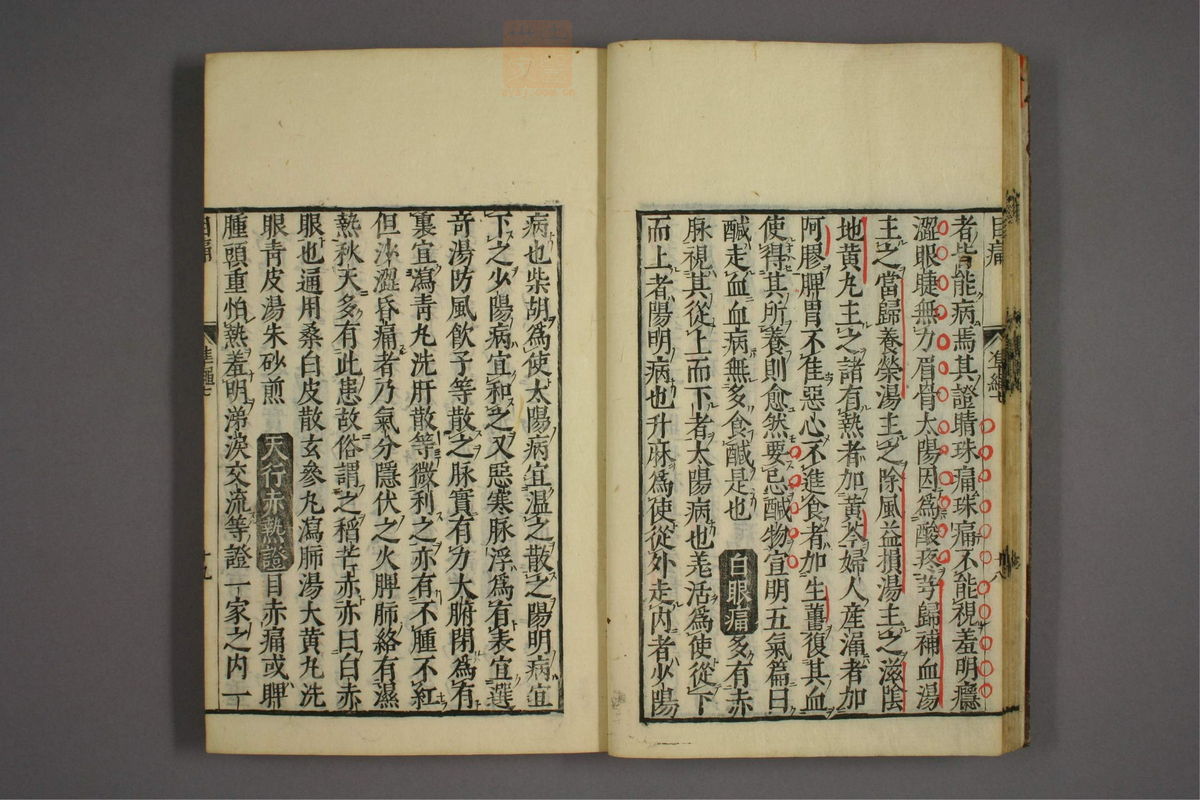 者皆能病焉其證睛珠痛珠痛不能視羞明癮
澀眼睫無力眉骨太陽因爲酸疼芎歸補血湯
主之當歸養榮湯主之除風益損湯主之滋陰
地黄丸主之諸有熱者加黄芩婦人産漏者加
阿膠脾胃不隹惡心不進食者加生薑復其血
使得其所養則愈然要忌醎物宣明五氣篇曰
醎走血血病無多食醎是也　白眼痛多有赤
脉視其從上而下者太陽病也羌活爲使從下
而上者陽明病也升麻爲使從外走内者少陽
病也柴胡爲使太陽病宜温之散之陽明病宜
下之少陽病宜和之又惡寒脉浮爲有表宜選
奇湯防風飲子等散之脉實有力大腑閉爲有
裏宜瀉青丸洗肝散等微利之亦有不腫不紅
但沙澀昏痛者乃氣分隱伏之火脾肺絡有濕
熱秋天多有此患故俗謂之稻芒赤亦曰白赤
眼也通用桑白皮散玄參丸瀉肺湯大黄丸洗
眼青皮湯朱砂煎　天行赤熱證目赤痛或脾
腫頭重怕熱羞明涕淚交流等證一家之内一
目痛
十九